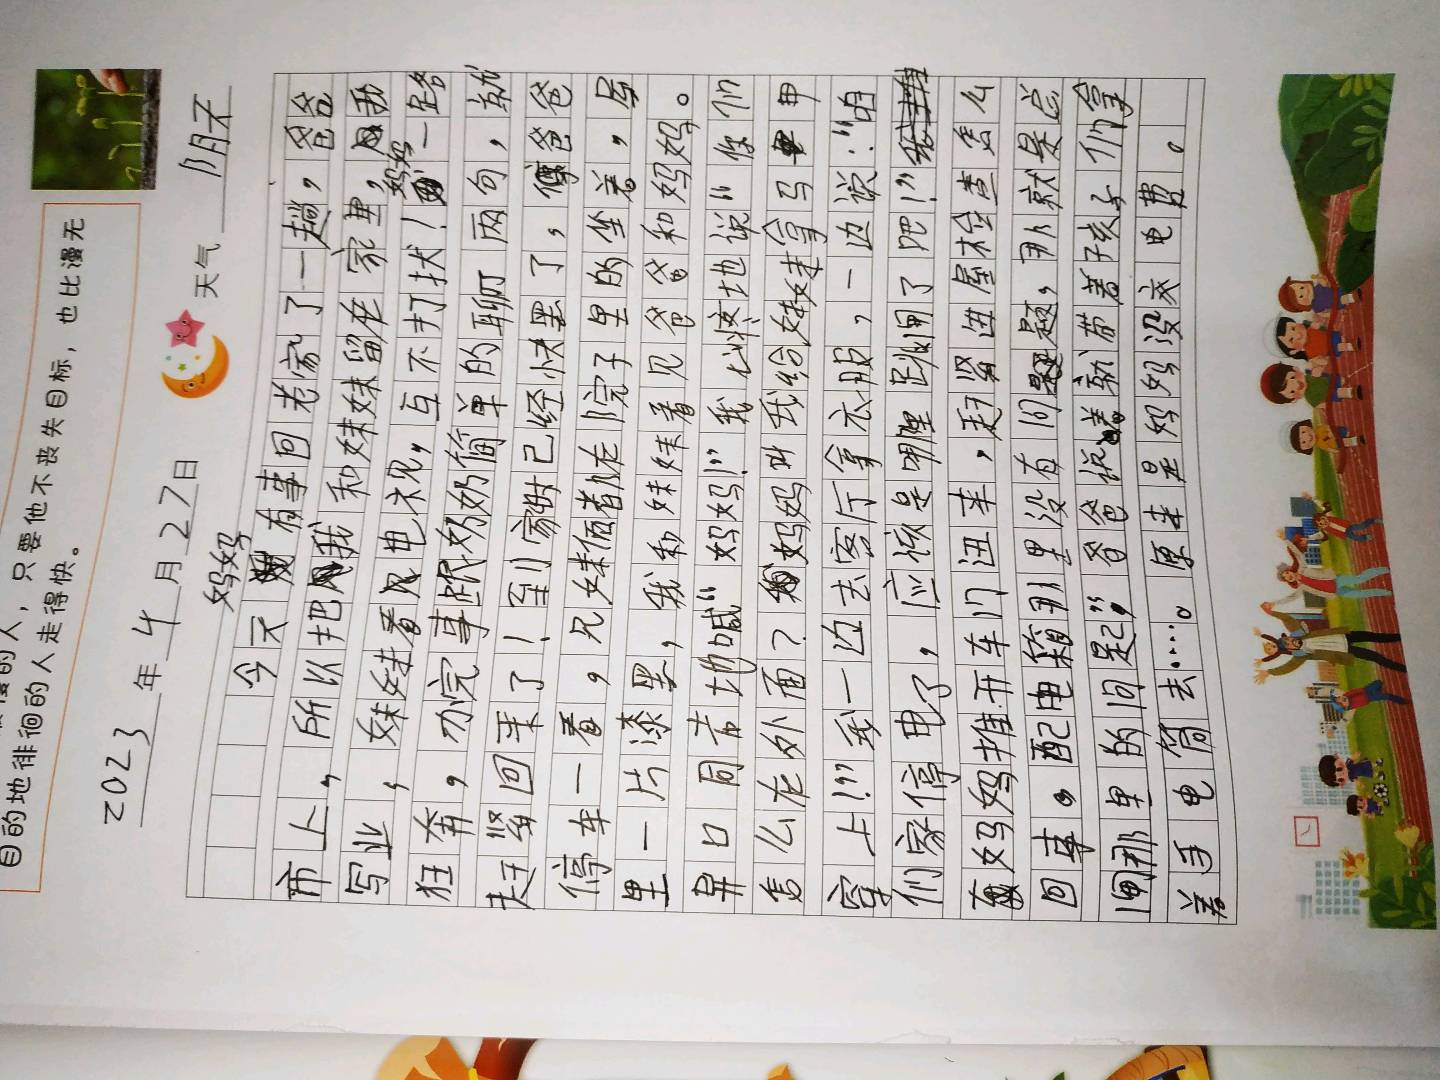 目的地徘徊的人,只要他不丧失目标,也比漫无
目的的人走得快。
2023年4月27日 天气 阴天
妈妈
今天有事回老家了一趟,爸爸
市上,所以把我和妹妹留在家里,我
妈妈
写业,妹妹看电视,互不打扰!一路
狂奔,办完事跟奶奶简单的聊两句,就
赶紧回来了!到家时已经快黑了,爸爸
停车一看,兄妹俩都在院子里的坐着,屋
里一片漆黑,我和妹妹看见爸爸和妈妈。
异口同声地喊“妈妈!”我心惊地说“你们
怎么在外面?妈妈叫我给妹妹拿马甲
穿上!”我一边去客厅拿衣服,一边说:“咱
们家停电了,应该是哪里跳闸了吧!”
妈妈推开车门进来,赶紧进屋检查怎么
回事。配电箱那里没有问题,那就是总
闸那里的问题”,爸爸说着就带着孩子们拿
着手电筒去……。原来是妈妈没交电费。